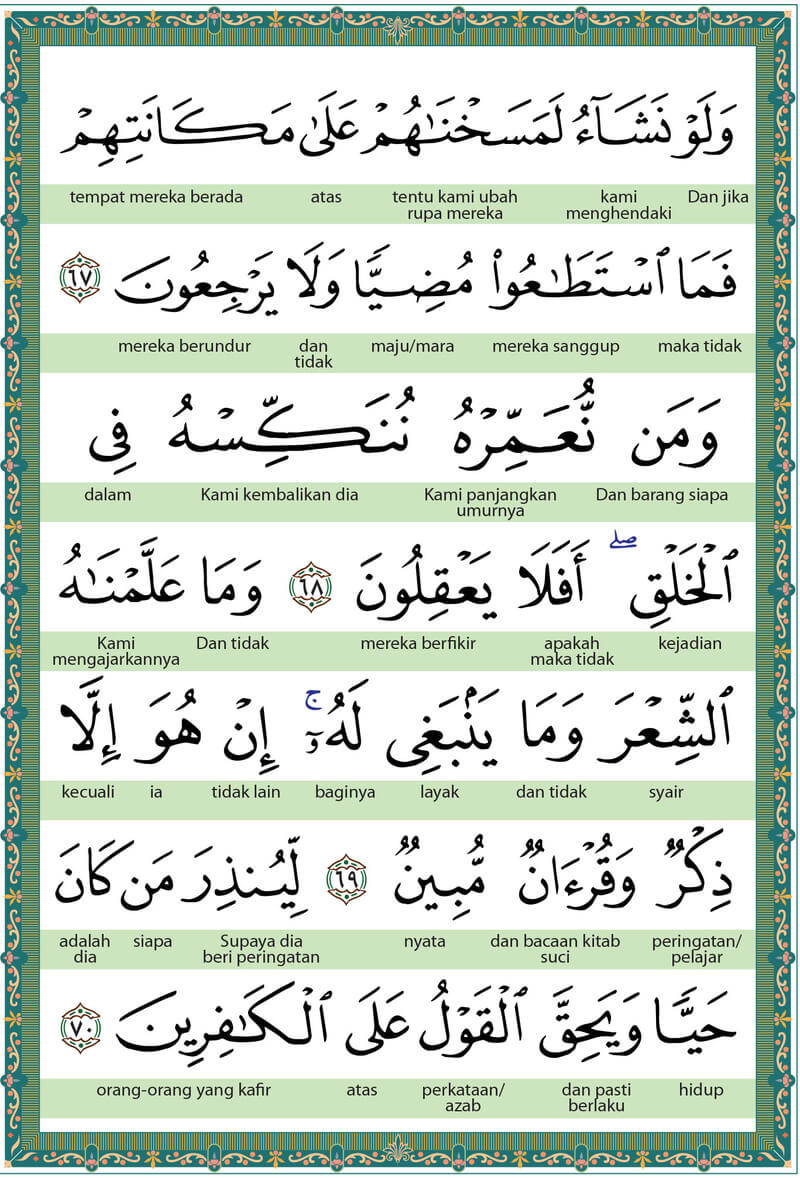 وَلَوْ نَشَآءُ لَمَسَخْنَٰهُمْ عَلَىٰ مَكَانَتِهِمْ
Dan jika kami menghendaki tentu kami ubah rupa mereka atas tempat mereka berada
فَمَا ٱسْتَطَٰعُوا۟ مُضِيًّا وَلَا يَرْجِعُونَ ٦٧
maka tidak mereka sanggup maju/mara dan tidak mereka berundur
وَمَن نُّعَمِّرْهُ نُنَكِّسْهُ فِى
Dan barang siapa Kami panjangkan umurnya Kami kembalikan dia dalam
ٱلْخَلْقِ ۖ أَفَلَا يَعْقِلُونَ ٦٨ وَمَا عَلَّمْنَٰهُ
kejadian apakah maka tidak mereka berfikir Dan tidak Kami mengajarkannya
ٱلشِّعْرَ وَمَا يَنۢبَغِى لَهُۥٓ ۚ إِنْ هُوَ إِلَّا
syair dan tidak layak baginya tidak lain ia kecuali
ذِكْرٌ وَقُرْءَانٌ مُّبِينٌ ٦٩ لِّيُنذِرَ مَن كَانَ
peringatan/pelajar dan bacaan kitab suci nyata Supaya dia beri peringatan siapa adalah dia
حَيًّا وَيَحِقَّ ٱلْقَوْلُ عَلَى ٱلْكَٰفِرِينَ ٧٠
hidup dan pasti berlaku perkataan/azab atas orang-orang yang kafir